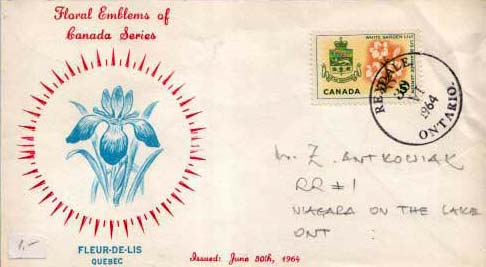 Floral Emblems of
Canada Series
WHITE GARDEN LILY
CANADA
REXDALE,
30
VI
1964
ONTARIO.
Z. ANTKOWIAK
RR#1
NIAGARA ON THE LAKE
ONT
1.-
FLEUR-DE-LIS
QUEBEC
Issued: June 30th, 1964